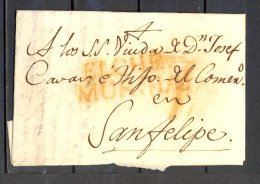 A los S.S. Viuda de Dn. Josef
Cavari e Hijo del Comerº
en
San felipe.